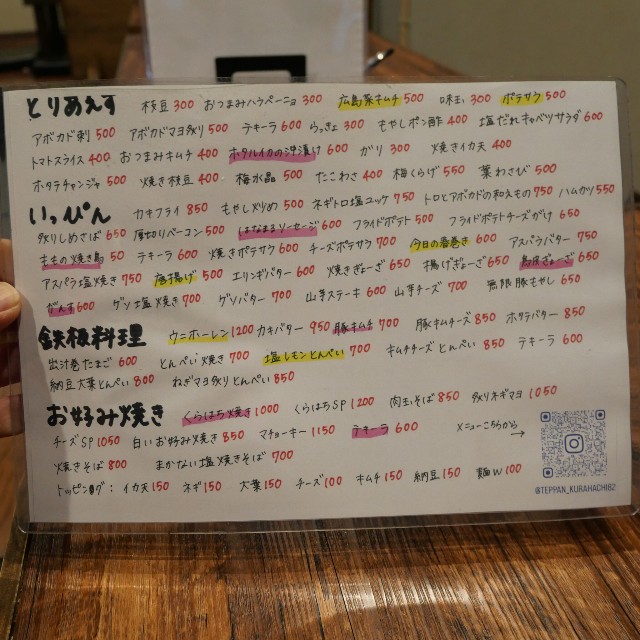 とりあえず 枝豆 300 おつまみハラペーニョ 300 広島菜キムチ 500 味玉 300 ポテサラ 500
アボカド刺 500 アボカドマヨ炙り 500 ラキーラ 600 らっきょ 300 もやしポン酢 400 塩だれキャベツサラダ 600
トマトスライス 400 おつまみキムチ 400 ホタルイカの沖漬け 600 ガリ 300 焼きイカ天 400
ホタテチャンジャ 500 焼き枝豆 400 梅水晶 500 たこわさ 400 梅くらげ 550 葉わさび 500
いっぴん カキフライ 850 もやし炒め 500 ネギトロ塩ユッケ 750 トロとアボカドの和えもの 750 ハムカツ 550
炙りしめさば 650 厚切りベーコン 500 はなまるソーセージ 600 フライドポテト 500 フライドポテトチーズがけ 650
きもの焼き鳥 50 ラキーラ 600 焼きポテサラ 600 チーズポテサラ 700 今日の春巻き 600 アスパラバター 750
アスパラ塩焼き 750 唐揚げ 500 エリンギバター 600 焼きぎょーざ 650 揚げぎょーざ 650 鳥皮ぎょーざ 650
がんす 600 ゲソ塩焼き 700 ゲソバター 700 山芋ステーキ 600 山芋チーズ 700 無限豚もやし 650
鉄板料理 ウニホーレン 1200 カキバター 950 豚キムチ 700 豚キムチーズ 850 ホタテバター 850
出汁巻たまご 600 とんぺい焼き 700 塩レモンとんぺい 700 キムチチーズとんぺい 850 ラキーラ 600
納豆大葉とんぺい 800 ねぎマヨ炙りとんぺい 850
お好み焼き くらはち焼き 1000 くらはちSP 1200 肉玉そば 850 炙りネギマヨ 1050
チーズSP 1050 白いお好み焼き 850 マチョーキー 1150 ラキーラ 600 メニューこちらから→
焼きそば 800 まかない塩焼きそば 700
トッピング: イカ天 150 ネギ 150 大葉 150 チーズ 100 キムチ 150 納豆 150 麺W 100
@TEPPAN_KURAHACHI82